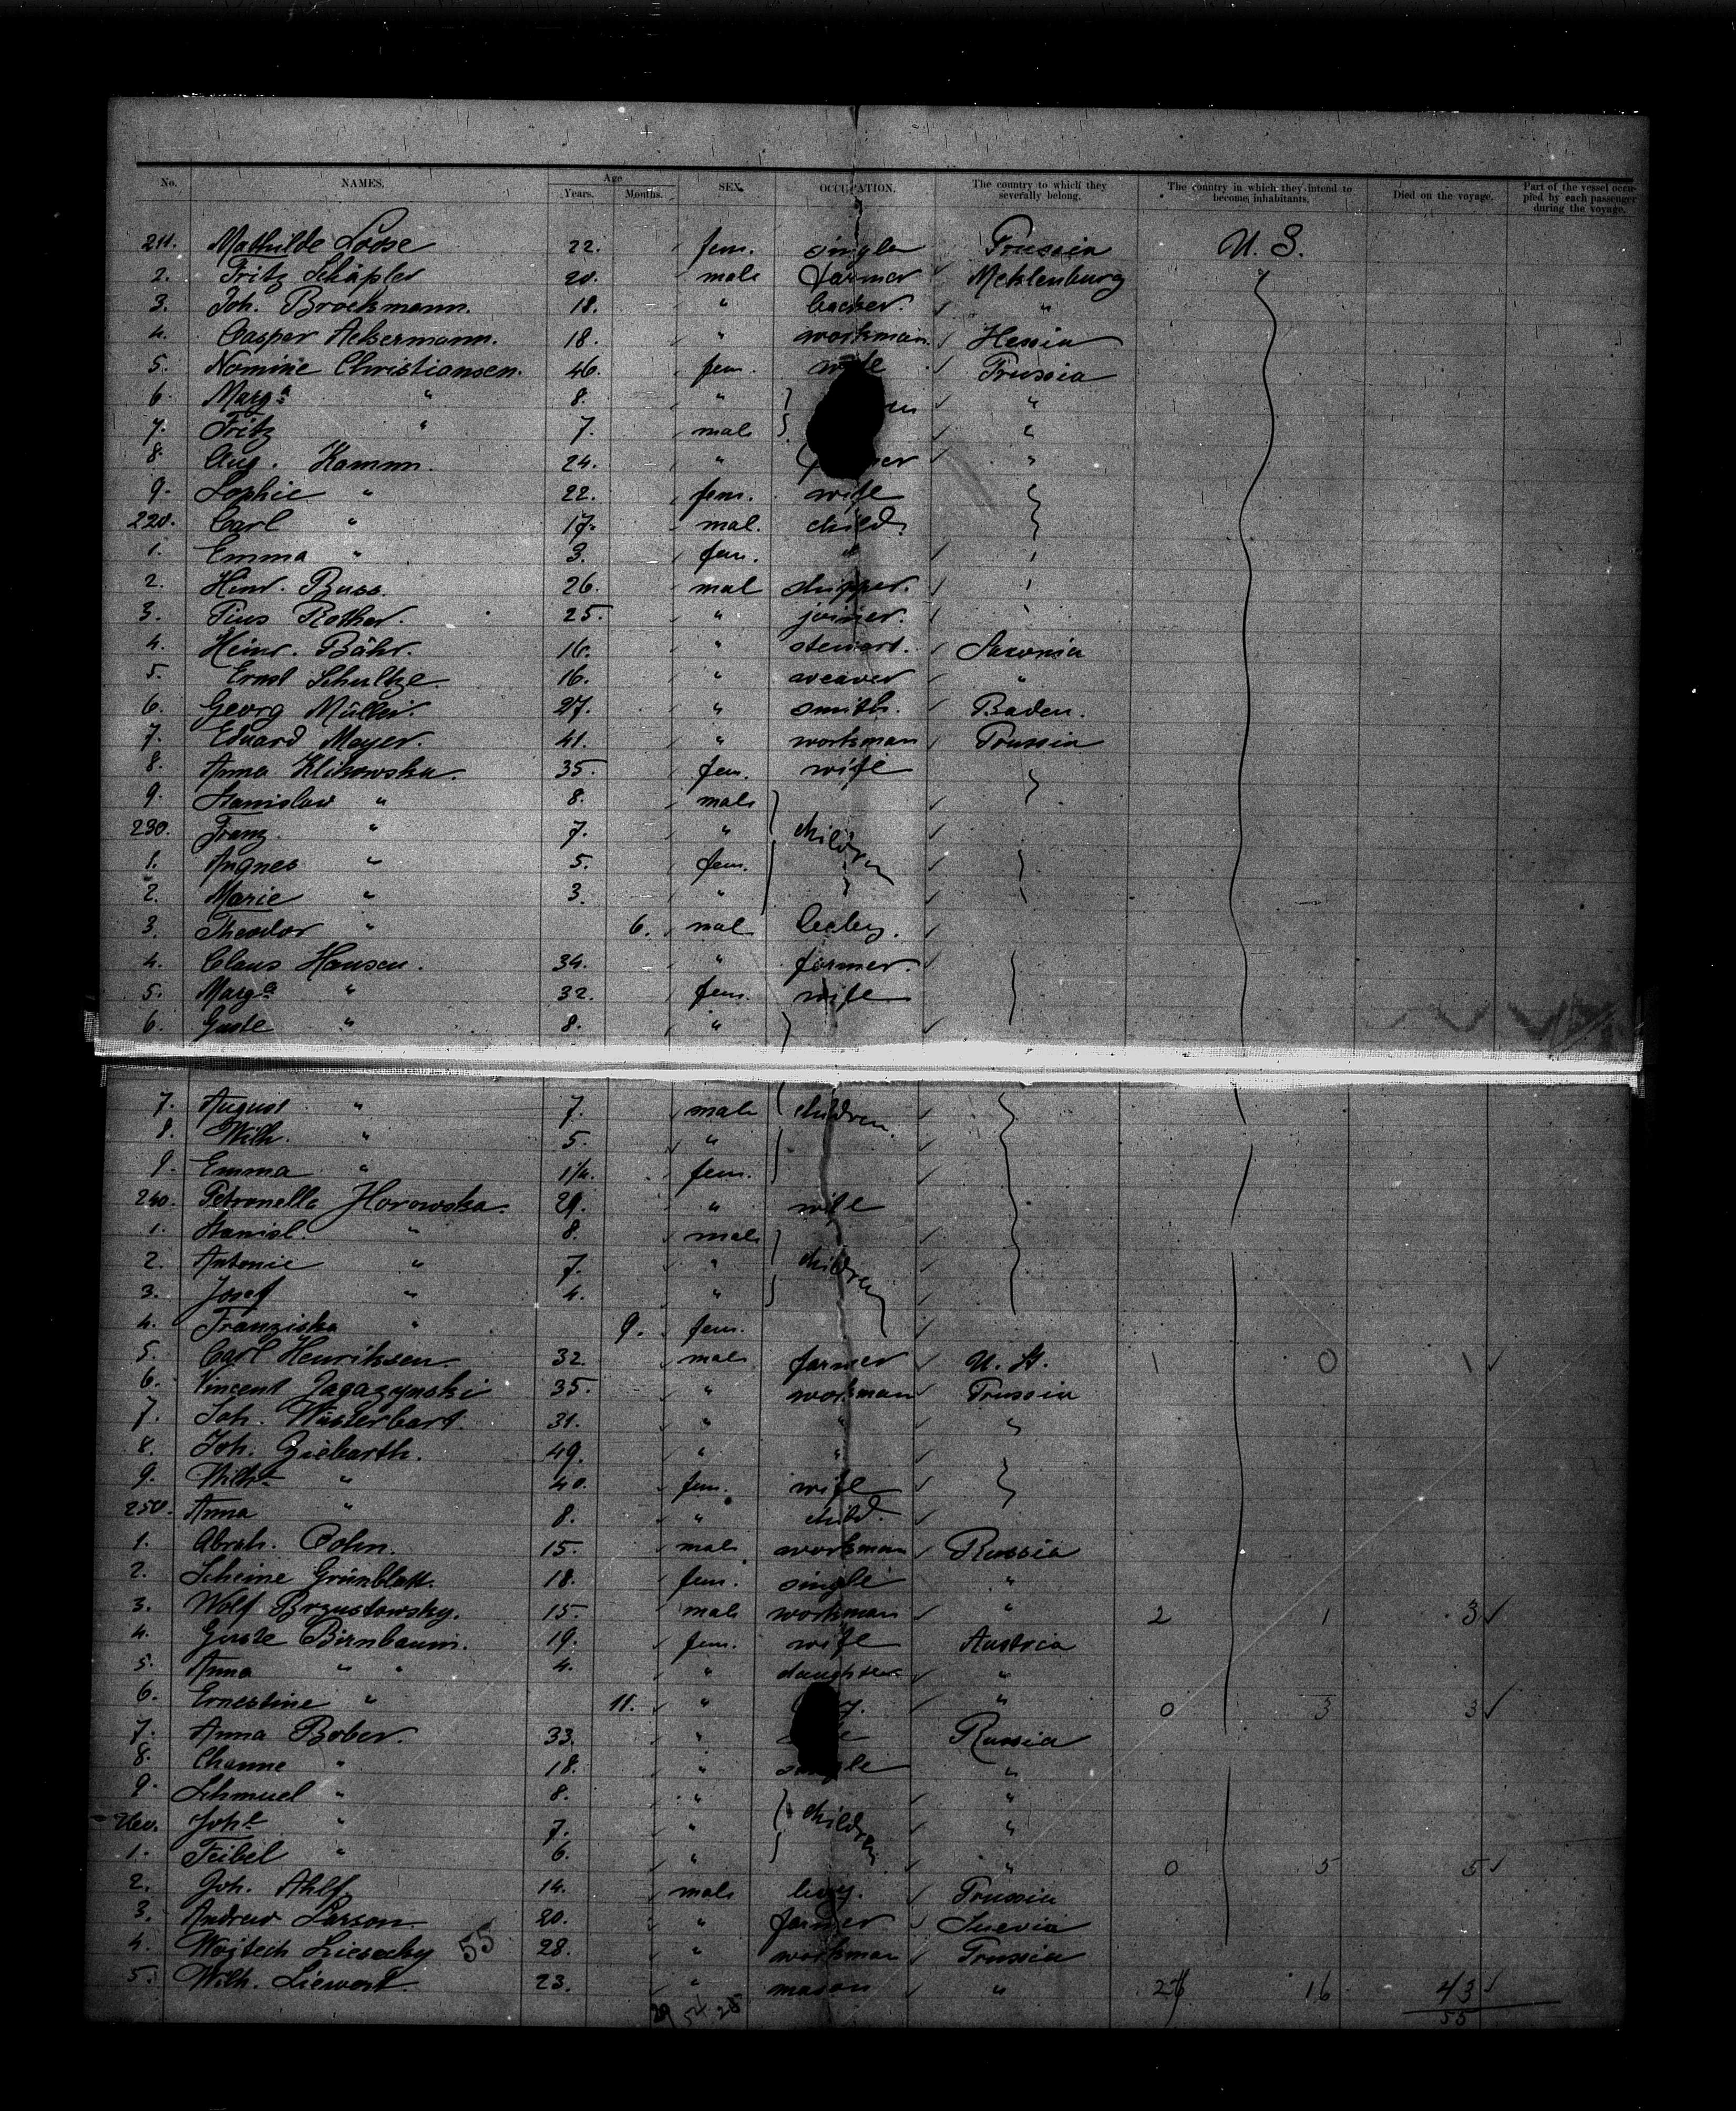 No. NAMES. Age Years. Months. SEX. OCCUPATION. The country to which they severally belong. The country in which they intend to become inhabitants. Died on the voyage. Part of the vessel occupied by each passenger during the voyage.
211. Mathilde Loose 22. fem. single Prussia U. S.
2. Fritz Schäpler 20. male farmer Mecklenburg
3. Joh. Brockmann. 18. " backer. "
4. Casper Ackermann. 18. " workman. Hessia
5. Nomine Christiansen. 46. fem. wife Prussia
6. Marg.a " 8. " "
7. Fritz " 7. male "
8. Aug. Kamm. 24. " "
9. Sophie " 22. fem. wife
220. Carl " 17. mal. child.
1. Emma " 3. fem. "
2. Heinr. Buss. 26. mal
3. Pius Rother. 25. " joiner.
4. Heinr. Bähr. 16. " stewart. Saxonia
5. Ernst Schultze. 16. " weaver "
6. Georg Müller. 27. " smith. Baden.
7. Eduard Meyer. 41. " workman Prussia
8. Anna Klikowska. 35. fem. wife
9. Stanislaw " 8. male
230. Franz. " 7. " children
1. Angnes " 5. fem.
2. Marie " 3. "
3. Theodor " 6. mal beeby.
4. Claus Hansen. 34. " farmer.
5. Marg.a " 32. fem. wife
6. Guste " 8. "
7. August " 7. male children.
8. Wilh. " 5. "
9. Emma " 1 1/4. fem.
240. Petronella Horowska. 29. " wife
1. Stanisl. " 8. male
2. Antonie " 7. " children
3. Josef " 4. "
4. Franziska " 9. fem.
5. Carl Henriksen 32. male farmer U. St. 1 0 1
6. Vincent Jagazynski 35. " workman Prussia
7. Joh. Wüsterbart. 31. " "
8. Joh. Giebarth. 49. " "
9. " 40. fem. wife
250. Anna " 8. " child.
1. Abrah. Cohn. 15. male workman Russia
2. Scheine Grünblatt. 18. fem. single "
3. Wolf Brzustowsky. 15. male workman " 2 1 3
4. Guste Birnbaum. 19. fem. wife Austria
5. Anna " " 4. " daughter "
6. Ernestine " 11. " " 0 3 3
7. Anna Bober. 33. " Russia
8. Channe " 18. " single "
9. Schmuel " 8. " "
260. " 7. " children "
1. Feibel " 6. " " 0 5 5
2. Joh. Ahlf 14. male boy. Prussia
3. Andrew Larson 20. " farmer Suevia
4. Wojtech 55 28. " workman Prussia
5. Wilh. Liewert. 23. " mason " 16 43
55